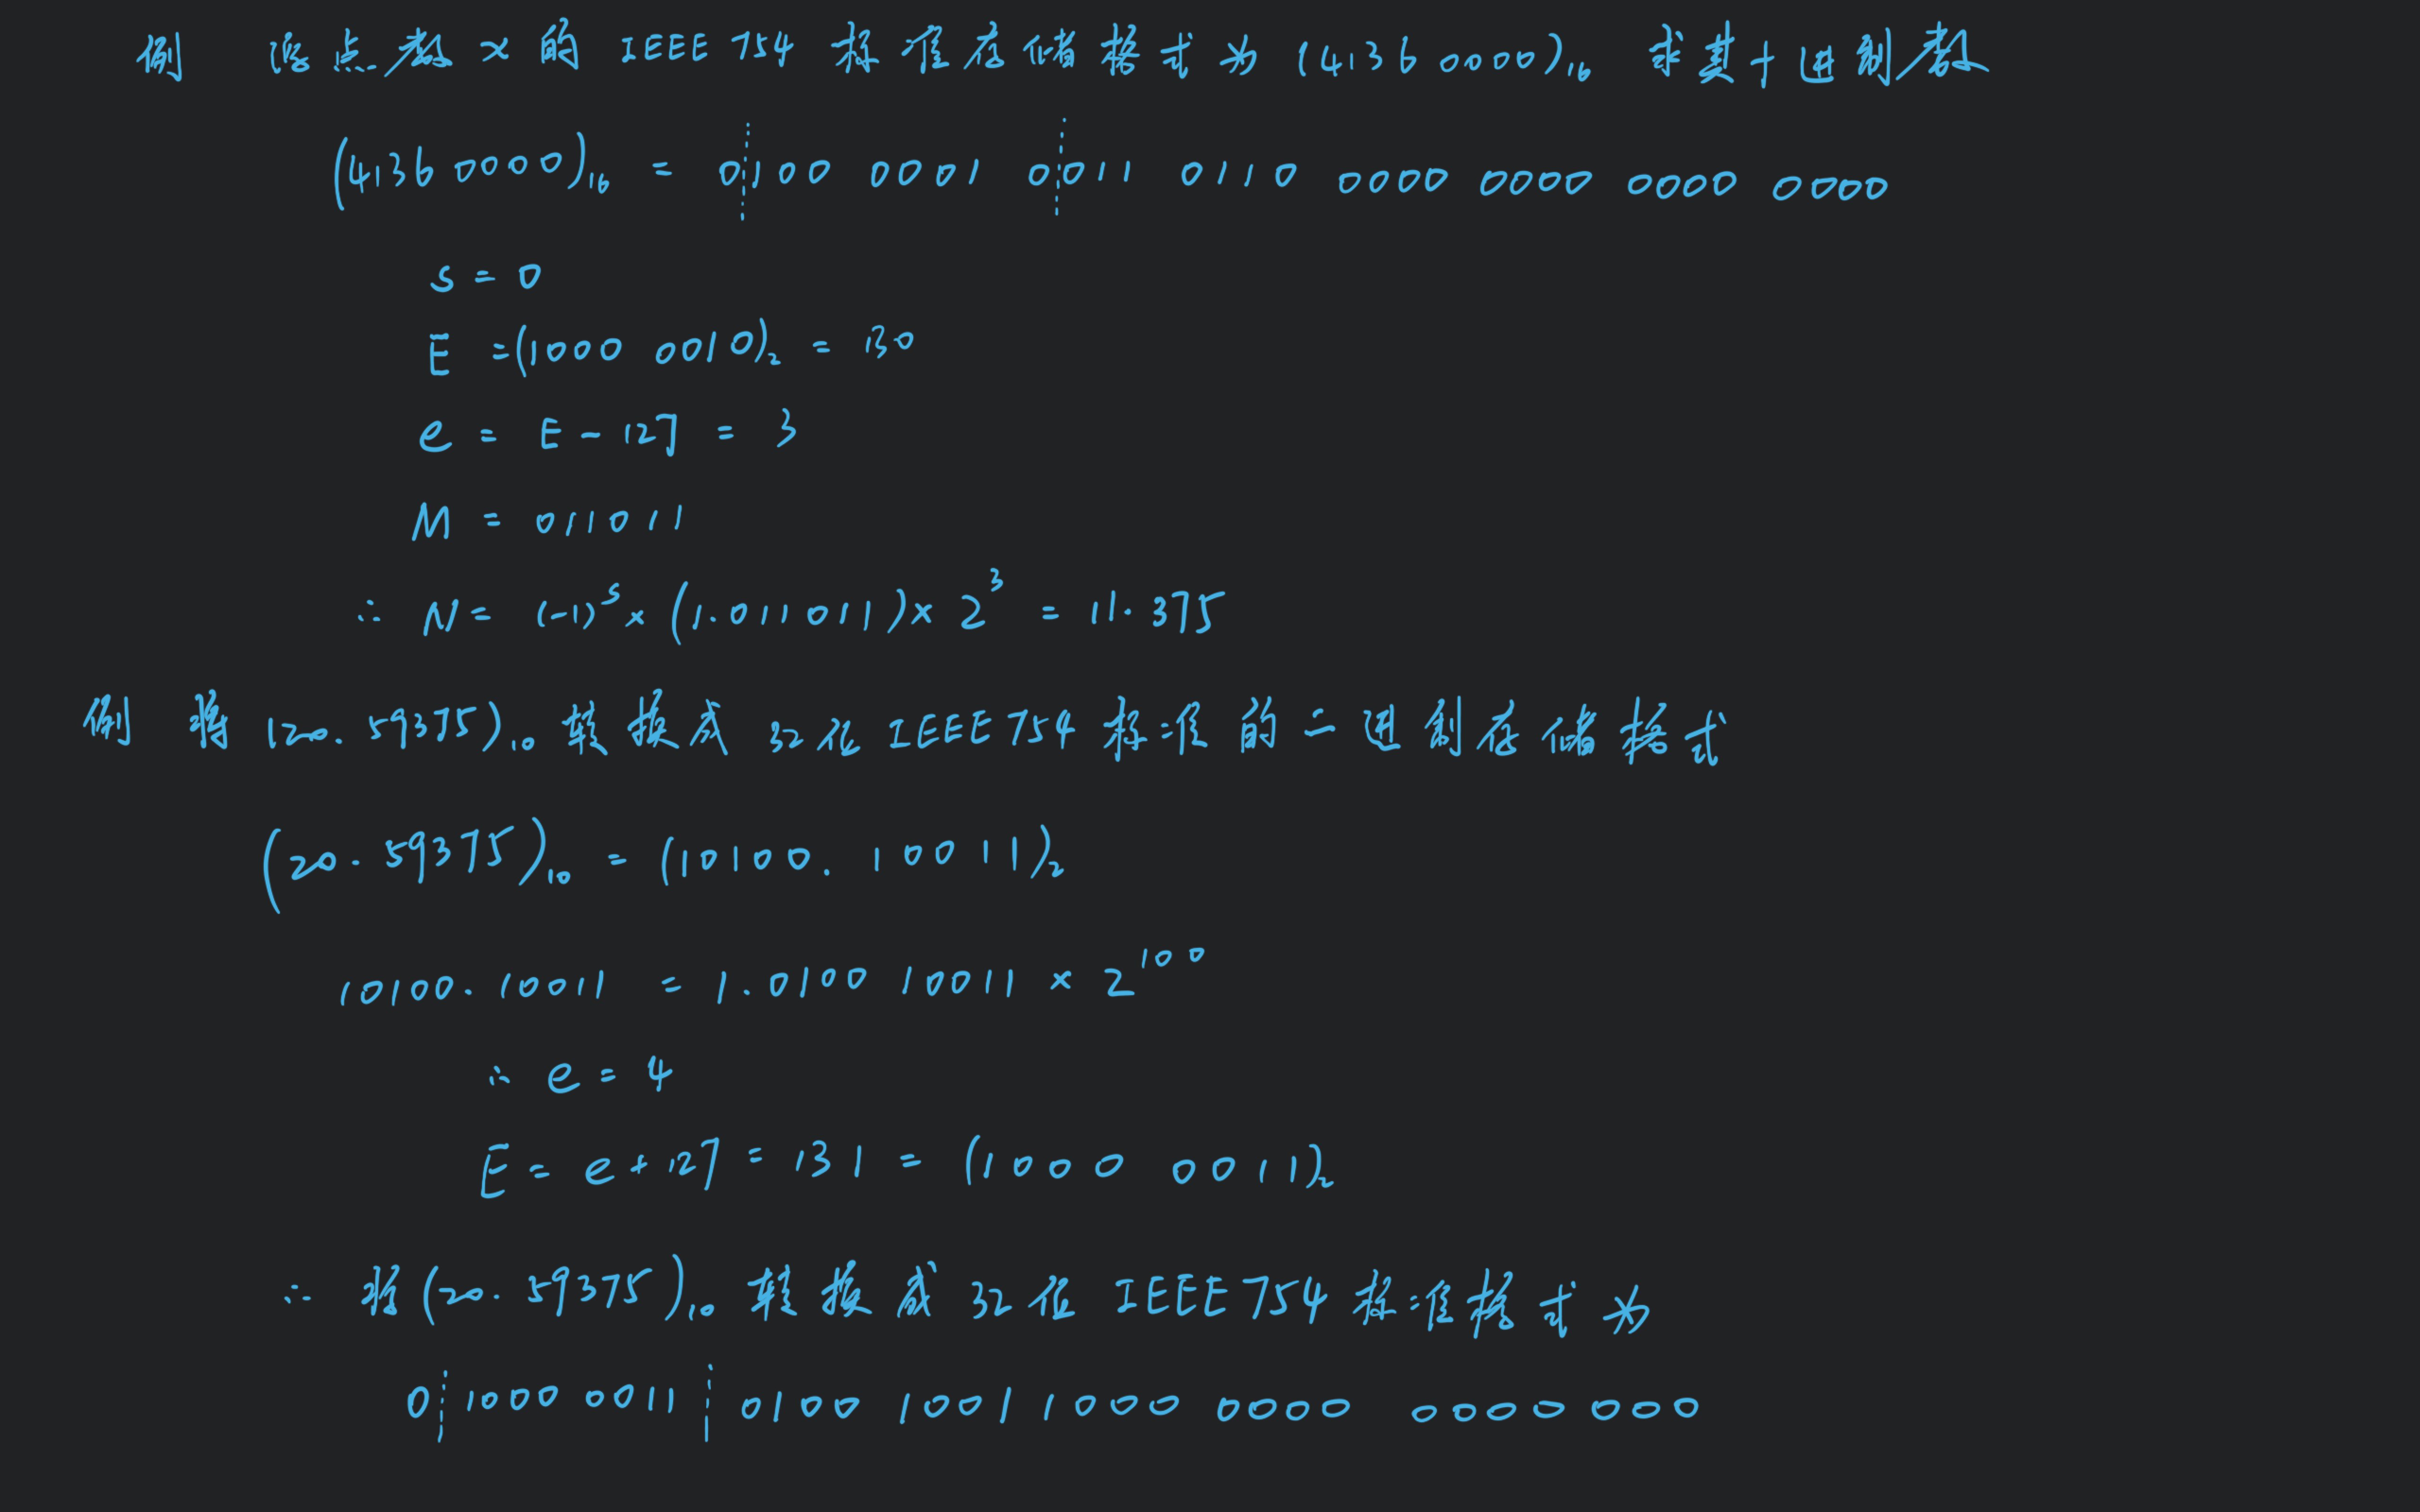 例 浮点数 x 的 IEEE 754 标准存储格式为 (41360000)₁₆ 求其十进制数
(41360000)₁₆ = 0 100 0001 0 011 0110 0000 0000 0000 0000
S = 0
E = (1000 0010)₂ = 130
e = E - 127 = 3
M = 011011
∴ N = (-1)^S × (1.011011) × 2³ = 11.375
例 将 (20.59375)₁₀ 转换成 32位 IEEE754 标准的二进制存储格式
(20.59375)₁₀ = (10100.10011)₂
10100.10011 = 1.0100 10011 × 2¹⁰⁰
∴ e = 4
E = e + 127 = 131 = (1000 0011)₂
∴ 将 (20.59375)₁₀ 转换成 32位 IEEE754 标准格式为
0 1000 0011 0100 1001 1000 0000 0000000